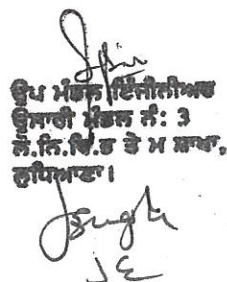 ਉਪ ਮੰਡਲ ਇੰਜੀਨੀਅਰ
ਉਸਾਰੀ ਮੰਡਲ ਨੰ: 3
ਲੋ.ਨਿ.ਵਿ.ਭ ਤੇ ਮ ਸ਼ਾਖਾ,
ਲੁਧਿਆਣਾ।
JSingh
JE